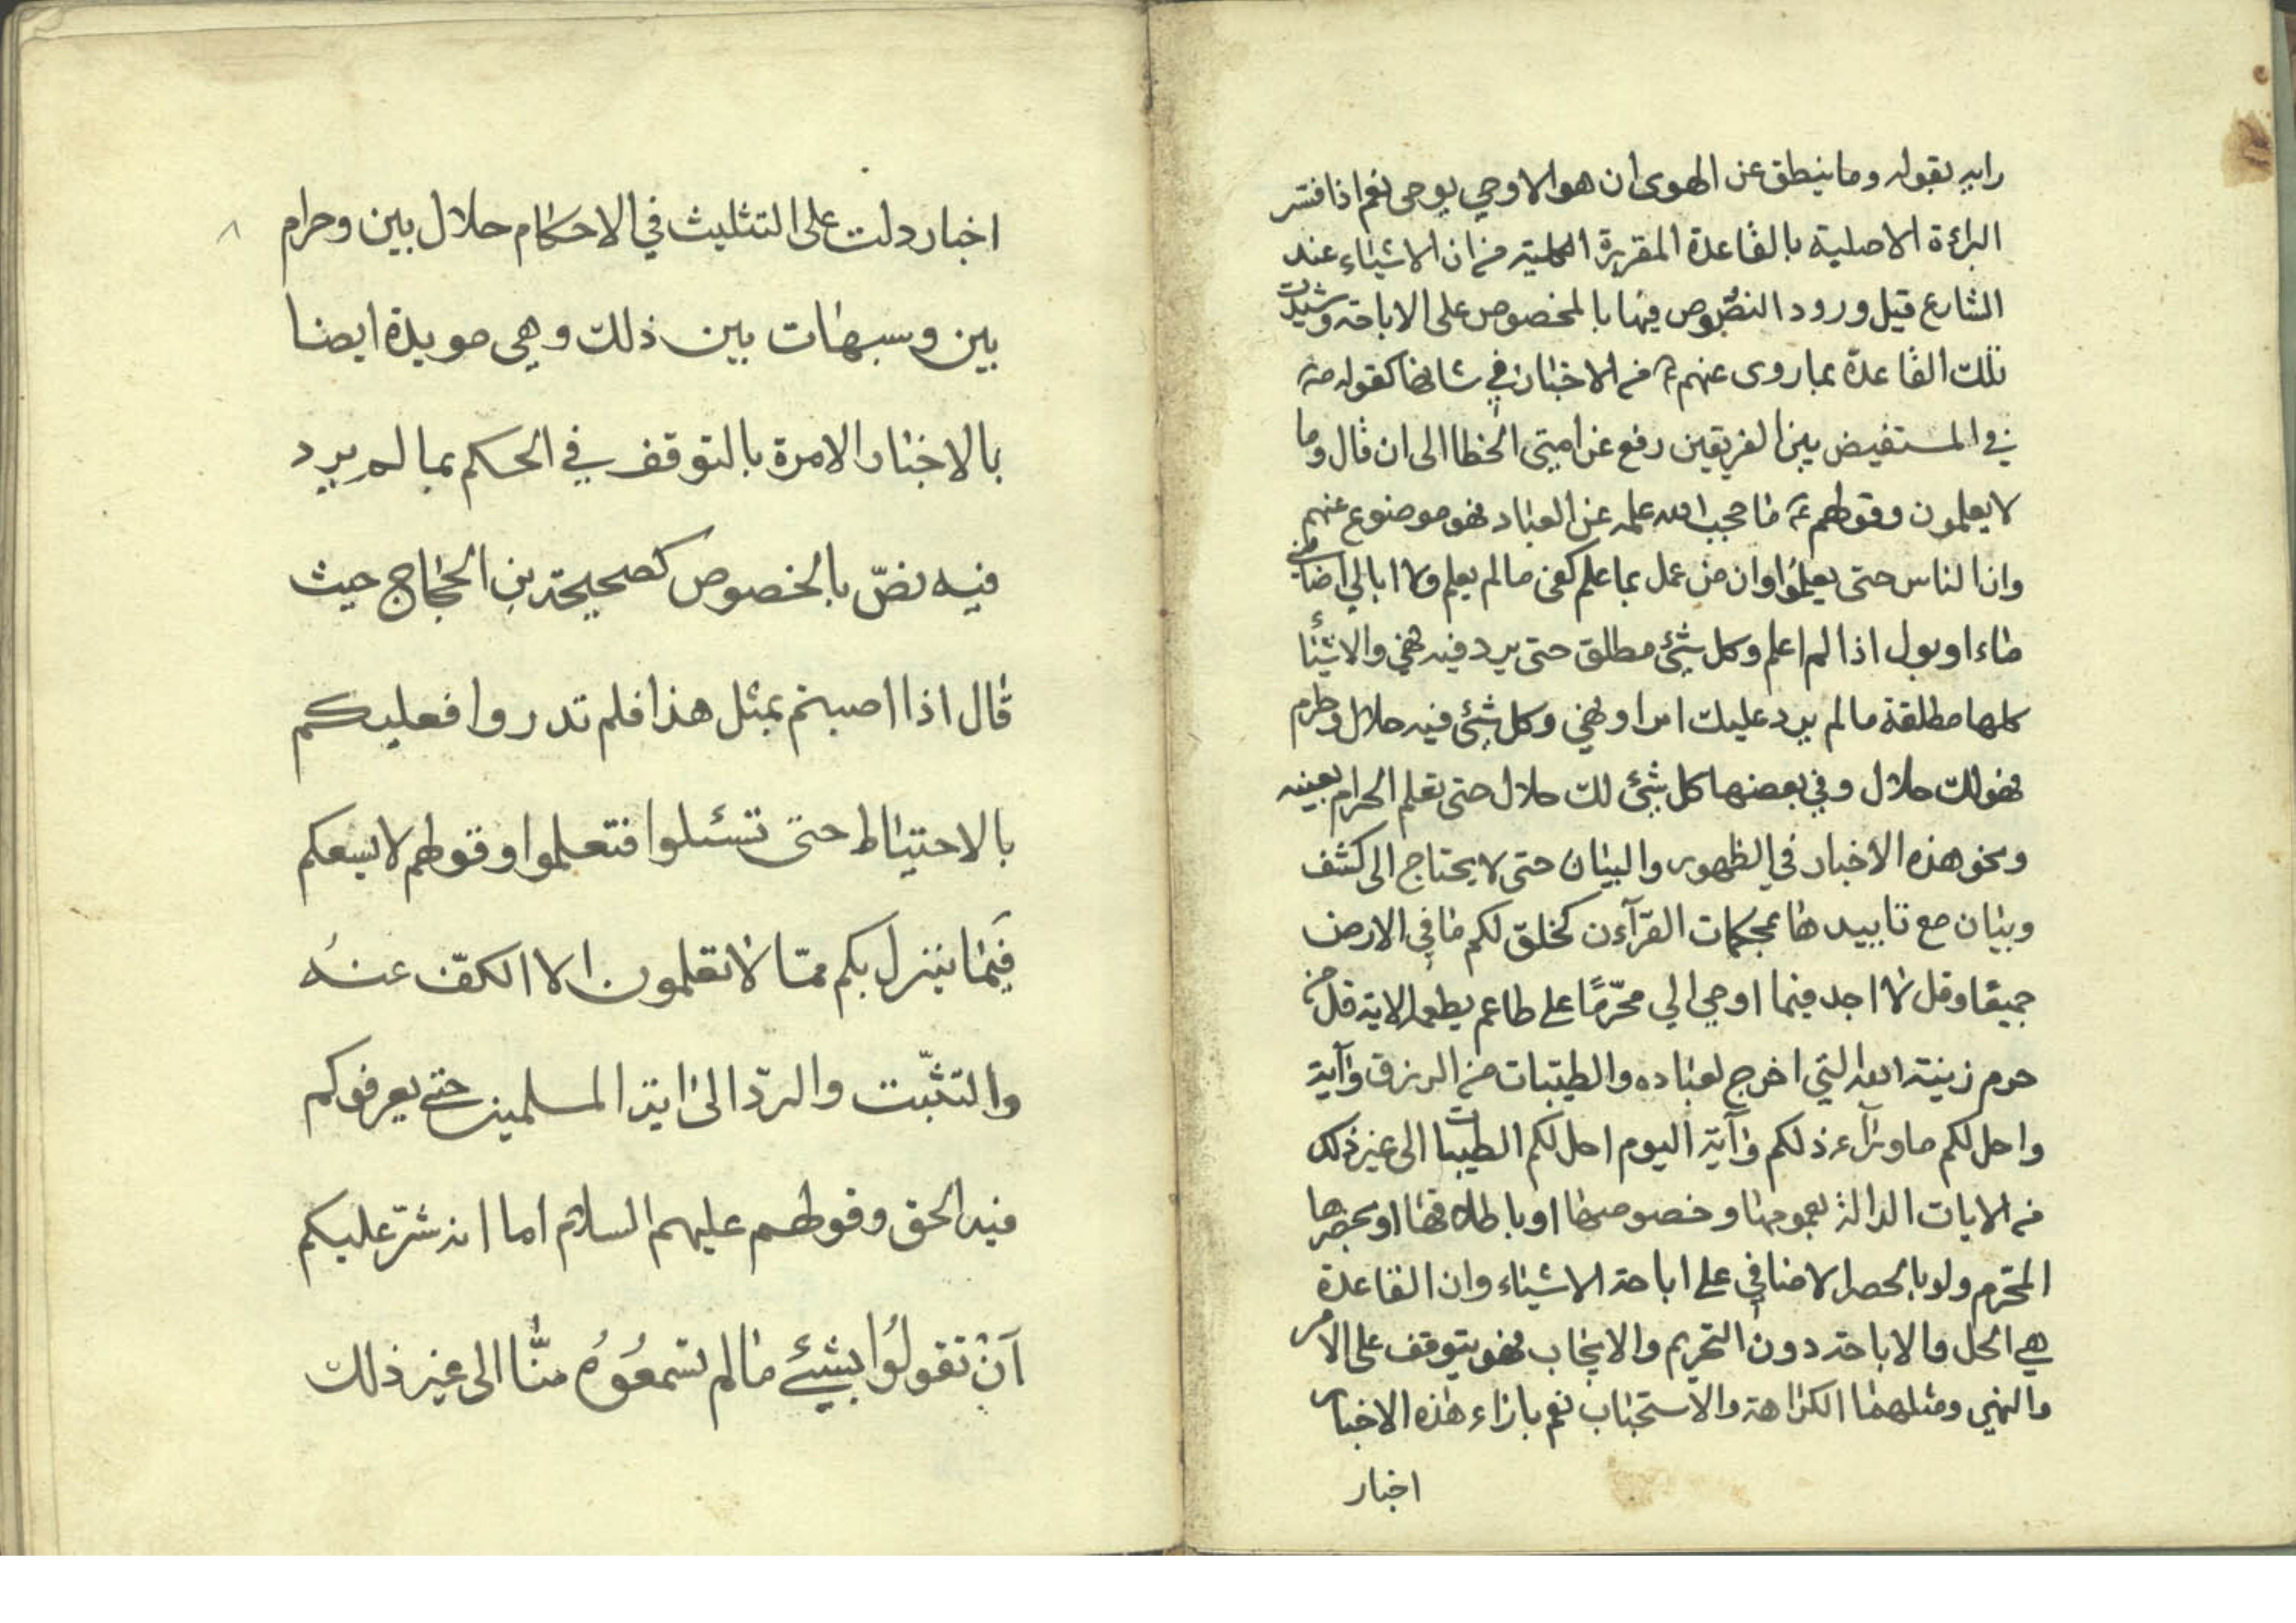 رايه بقوله وما ينطق عن الهوى ان هو الا وحي يوحى نعم اذا فسّر
البرائة الاصلية بالقاعدة المقررة الكلية من ان الاشياء عند
الشارع قبل ورود النصّوص فيها بالمخصوص على الاباحة وشيدت
تلك القاعدة بما روى عنهم ع من الاخبار في شانها كقوله ص
في المستفيض بين الفريقين رفع عن امتي الخطا الى ان قال وما
لا يعلمون وقولهم ع ما حجب الله علمه عن العباد فهو موضوع عنهم
وان الناس حتى يعلموُا وان من عمل بما علم كفى ما لم يعلم ولا ابالي اصابني
ماء او بول اذا لم اعلم وكل شيئ مطلق حتى يرد فيه نهي والاشياء
كلها مطلقة ما لم يرد عليك امر او نهي وكل شيئ فيه حلال وحرام
فهو لك حلال وفي بعضها كل شيئ لك حلال حتى تعلم الحرام بعينه
ونحو هذه الاخبار في الظهور والبيان حتى لا يحتاج الى كشف
وبيان مع تاييدها بمحكمات القرآءن كخلق لكم ما في الارض
جميعا وقل لا اجد فيما اوحي الي محرّمًا على طاعم يطعمه الاية قل من
حرم زينة الله التي اخرج لعباده والطيّبات من الرزق وآية
واحل لكم ما ورآء ذلكم وآية اليوم احل لكم الطيبات الى غير ذلك
من الايات الدالة بعمومها وخصوصها او باطلاقها او بحصرها
المحرم ولو بالحصر الاضافي على اباحة الاشياء وان القاعدة
هي الحل والاباحة دون التحريم والايجاب فهو يتوقف على الامر
والنهي ومثلهما الكراهة والاستحباب نعم بازاء هذه الاخبار
اخبار
٨
اخبار دلت على التثليث في الاحكام حلال بين وحرام
بين وسبهات بين ذلك وهي مويدة ايضا
بالاخبار الامرة بالتوقف في الحكم بما لم يرد
فيه نصّ بالخصوص كصحيحة بن الحجاج حيث
قال اذا اصبتم بمثل هذا فلم تدروا فعليكم
بالاحتياط حتى تسئلوا فتعلموا وقولهم لا يسعكم
فَيما ينزل بكم ممّا لا تعلمون الا الكفّ عنهُ
والتثبّت والردّ الى اية المسلمين حتى يعرفوكم
فيه الحق وقولهم عليهم السلام اما انه شرّ عليكم
آنْ تقولُوا بشيئ ما لم تسمعُوُه منّا الى غير ذلك